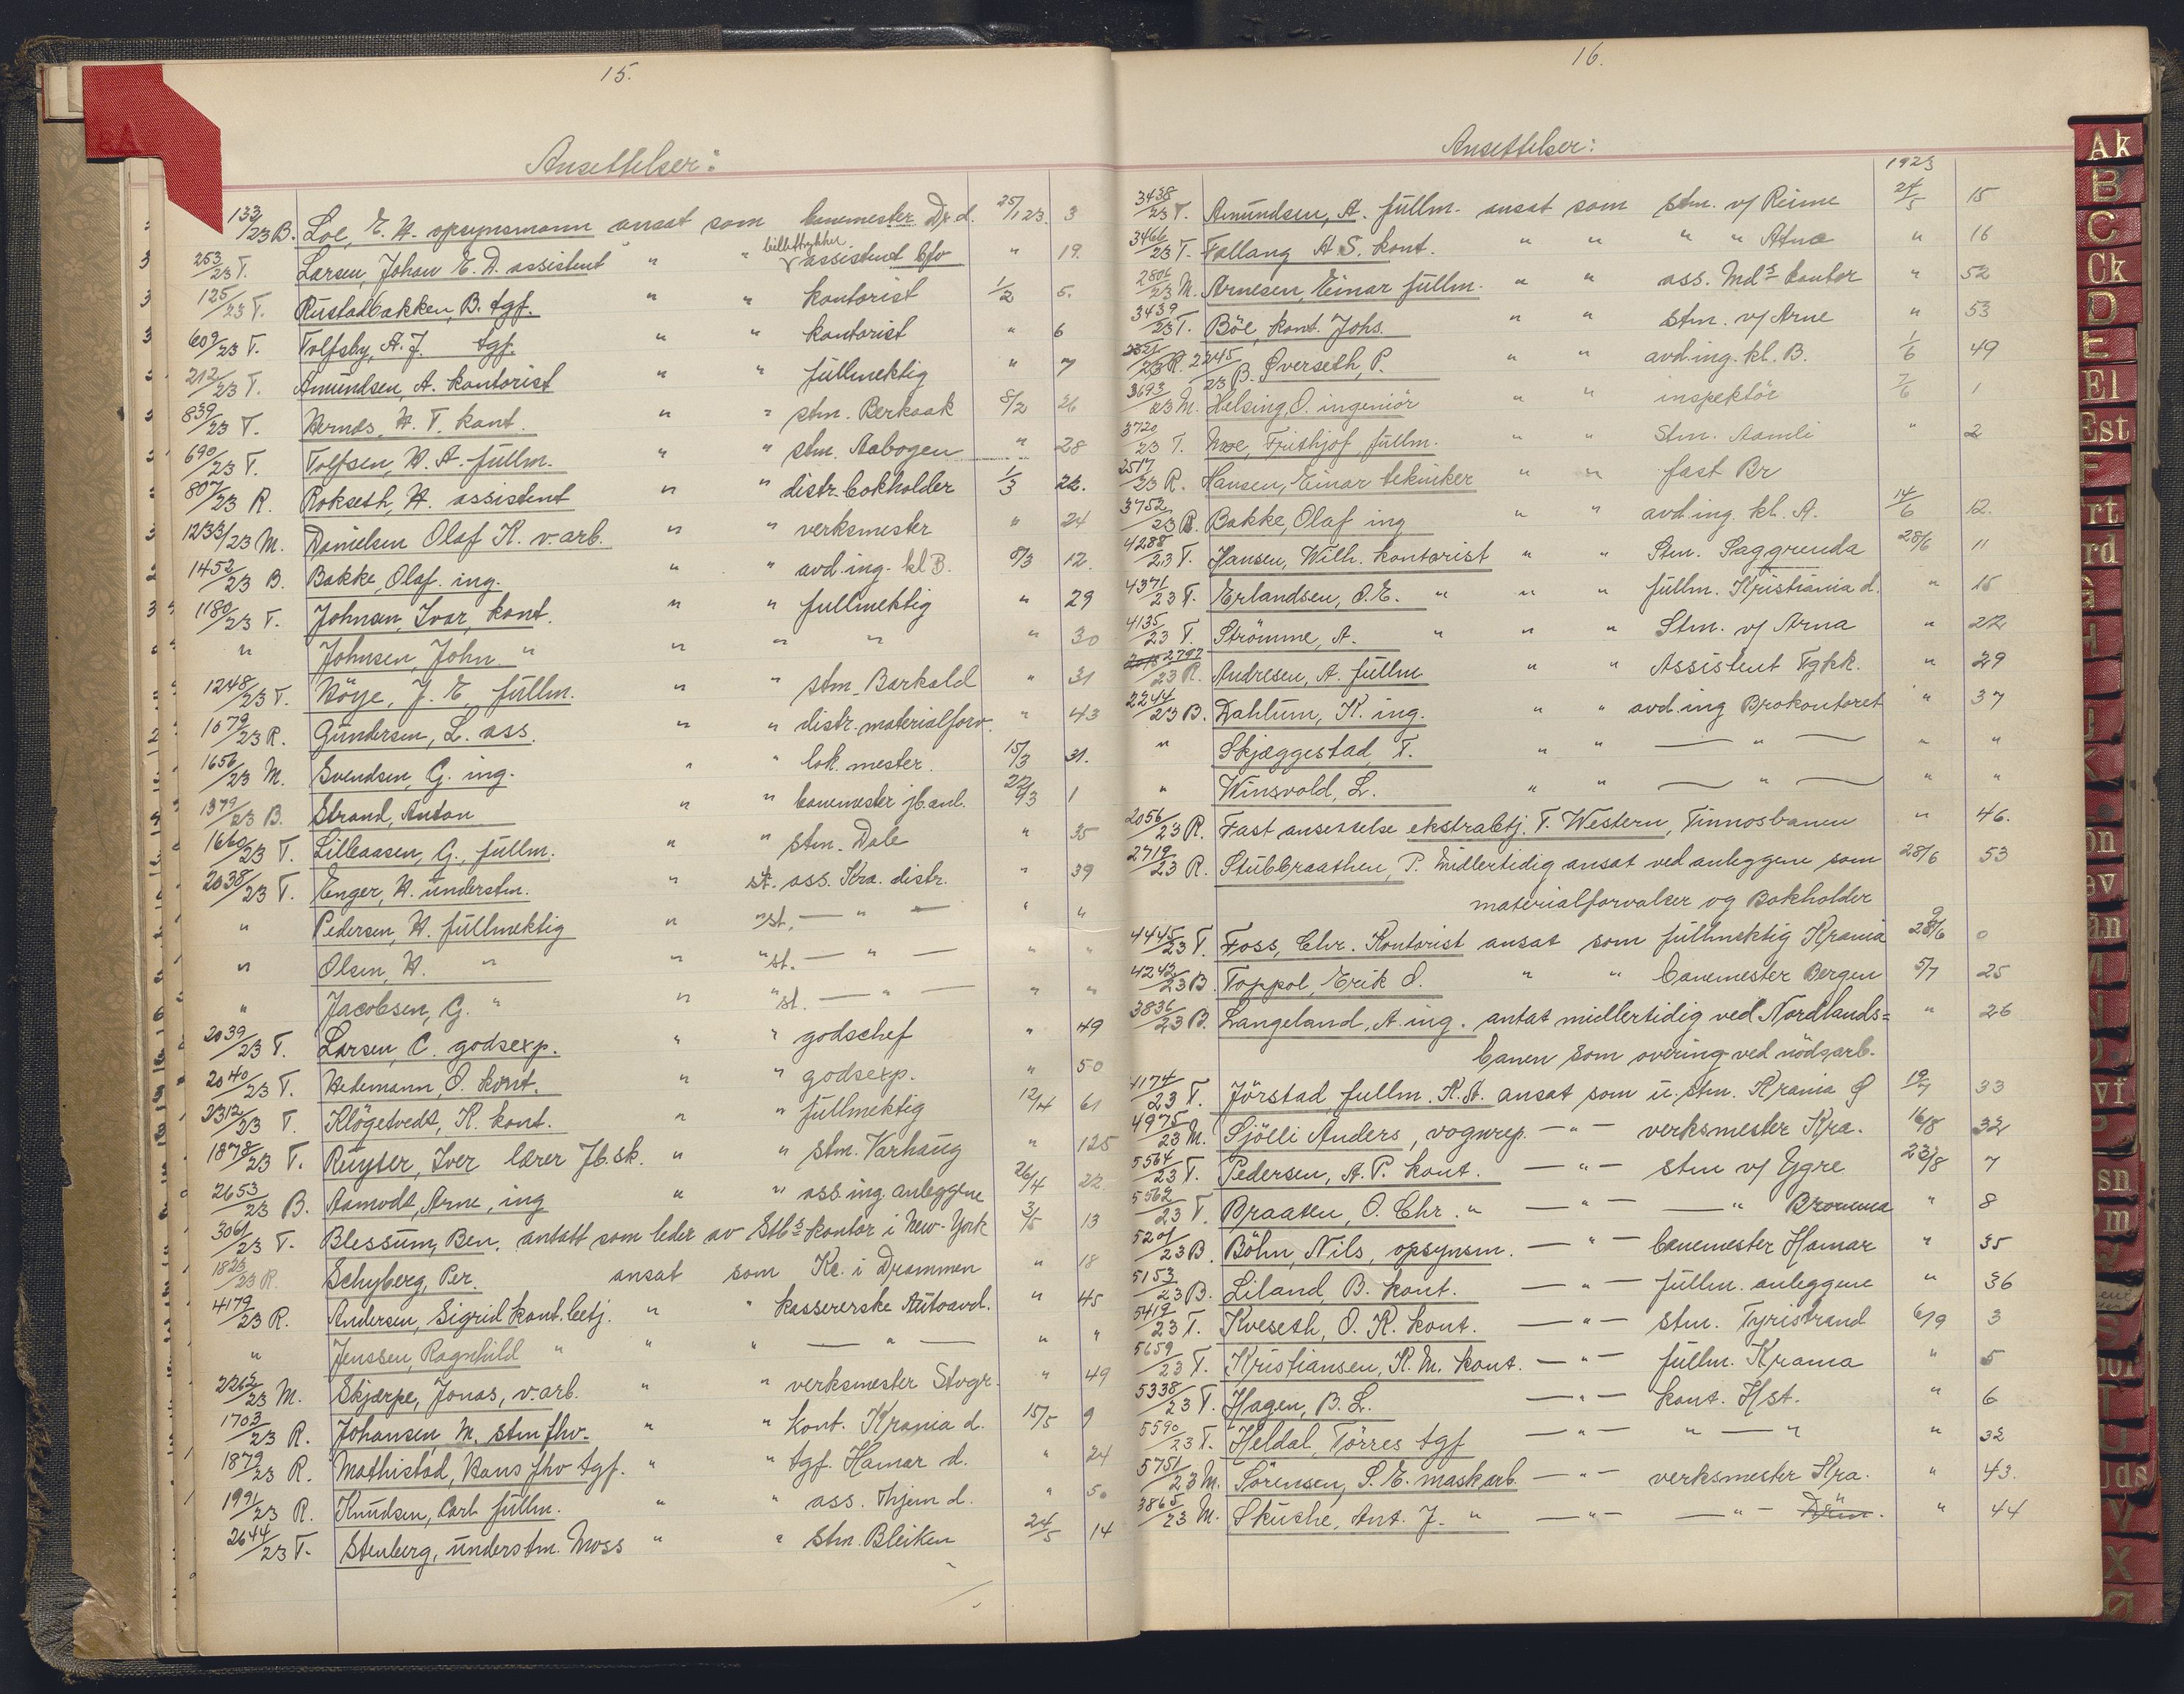 15.
Ansettelser:
133/23 B. Loe, E. H. opsynsmann ansat som banemester Dr. d. 25/1 23. 3
billettrykker
253/23 T. Larsen, Johan E. D. assistent " " assistent " 19.
125/23 T. Rustadbakken, B. tgf. " " kontorist 1/2 5.
609/23 T. Tolfsby, A. J. tgf. " " kontorist " 6
212/23 T. Amundsen, A. kontorist " " fullmektig " 7
839/23 T. H. T. kant. " " stm. Berkaak 8/2 26
690/23 T. Tolfsen, H. A. fullm. " " stm. Aabogen " 28
807/23 R. Rokseth, H. assistent " " distr. bokholder 1/3 22.
1233/23 M. Danielsen Olaf K. v. arb. " " verksmester " 24
1452/23 B. Bakke, Olaf. ing. " " avd. ing. kl B. 8/3 12.
1180/23 T. Johnsen, Ivar, kont. " " fullmektig " 29
" Johnsen, John. " " " " " 30
1248/23 T. Höye, J. E., fullm. " " stm. Barkald " 31
1679/23 R. Gundersen, L. ass. " " distr. materialforv. " 43
1656/23 M. Svendsen, G. ing. " " lok. mester. 15/3 31.
1379/23 B. Strand, Anton " " banemester jb. anl. 22/3 1
1660/23 T. Lilleaasen, G., fullm. " " stm. Dale " 35
2038/23 T. Enger, H. understm. " st. ass. Kra. distr. " 39
" Pedersen, H. fullmektig " " st. — " — " "
" Olsen, H. " " " st. — " — " "
" Jacobsen, G. " " " st. — " — " "
2039/23 T. Larsen, C. godsexp. " " godschef " 49
2040/23 T. Hedemann, O. kont. " " godsexp. " 50
2312/23 T. Klögetvedt, K. kont. " " fullmektig 12/4 61
1878/23 T. Ruyter, Iver lærer Jb. sk. " " stm. Varhaug " 125
2653/23 B. Aamodt, Arne, ing " " ass. ing. anleggene 26/4 22.
3061/23 T. Blessum, Ben. antatt som leder av Stbs kontor i New-York 3/5 13
1823/23 R. Schyberg, Per. ansat som Kc. i Drammen " 18
4179/23 R. Andersen, Sigrid kont. betj. " " kassererske Autoavd. " 45
" Jenssen, Ragnhild " " " — " — " "
2262/23 M. Skjærpe, Jonas, v. arb. " " verksmester Stvgr. " 49
1703/23 R. Johansen, M. stm fhv. " " kont. Krania d. 15/5 9
1879/23 R. Mathistad, Hans fhv tgf. " " tgf. Hamar d. " 24
1991/23 R. Knudsen, Carl fullm. " " ass. Thjem d. " 50
2644/23 T. Stenberg, understm. Moss " " stm. Bleiken 24/5 14
16.
Ansettelser:
1923
3438/23 T. Amundsen, A. fullm. ansat som stm. v/ Reime 24/5 15
3466/23 T. Fallang A. S. kont. " " " " Atna " 16
2801/23 M. Arnesen, Einar fullm. " " ass. Mds kontor " 52
3439/23 T. Böe, kont. Johs. " " stm. v/ Arne " 53
2321/23 R. 2245/23 B. Øverseth, P. " " avd. ing. kl. B. 1/6 49
3693/23 M. Helsing, O. ingeniör " " inspektör 7/6 1
3720/23 T. Moe, Frithjof fullm. " " Stm. Aamli " 2
2517/23 R. Hansen, Einar tekniker " " fast Br
3752/23 B. Bakke, Olaf ing " " avd ing. kl. A. 14/6 12.
4288/23 T. Hansen, Wilh. kontorist " " Stm. Saggrenda 28/6 11
4371/23 T. Erlandsen, O. E. " " " fullm. Kristiania d. " 15
4135/23 T. Strömme, A. " " " Stm. v/ Arna " 22
2797/23 R. Andresen, A. fullm " " Assistent Tgkk. " 29
2244/23 B. Dahlum, K. ing. " " avd. ing Brokontoret " 37
" Skjæggestad, T. " " — " — " "
" Winsvold, L. " " — " — " "
2056/23 R. Fast ansettelse ekstrabetj. T. Western, Tinnosbanen " 46.
2719/23 R. Stubbraathen, P. Midlertidig ansat ved anleggene som 28/6 53
materialforvalter og Bokholder
4445/23 T. Foss, Chr. Kontorist ansat som fullmektig Krania 28/6 0
4242/23 B. Toppol, Erik O. " " banemester Bergen 5/7 25
3836/23 B. Langeland, A. ing. antat midlertidig ved Nordlands= " 26
banen som overing ved nödsarb.
4174/23 T. Jörstad, fullm. K. A. ansat som u. stm. Krania Ø 19/7 33
4975/23 M. Sjölli Anders, vognrep. — " — verksmester Kra. 16/8 32
5564/23 T. Pedersen, A. P. kont. — " — stm v/ Ygre 23/8 7
5562/23 T. Braaten, O. Chr. " — " — — " Bromma " 8
5201/23 B. Böhn, Nils, opsynsm. — " — banemester Hamar " 35
5153/23 B. Liland, B. kont. — " — fullm. anleggene " 36
5419/23 T. Kveseth, O. K. kont. — " — stm. Tyristrand 6/9 3
5659/23 T. Kristiansen, K. M. kont. — " — fullm. Krania " 5
5338/23 T. Hagen, B. L. — " — kont. Hst. " 6
5590/23 T. Heldal, Törres tgf — " — " — " " 32
5751/23 M. Sörensen, S. E. maskarb. — " — verksmester Kra. " 43.
3865/23 M. Skuche, Ant. J. " — " — — " — Drm. " 44
Ak
B
C
Ck
D
E
El
Est
F